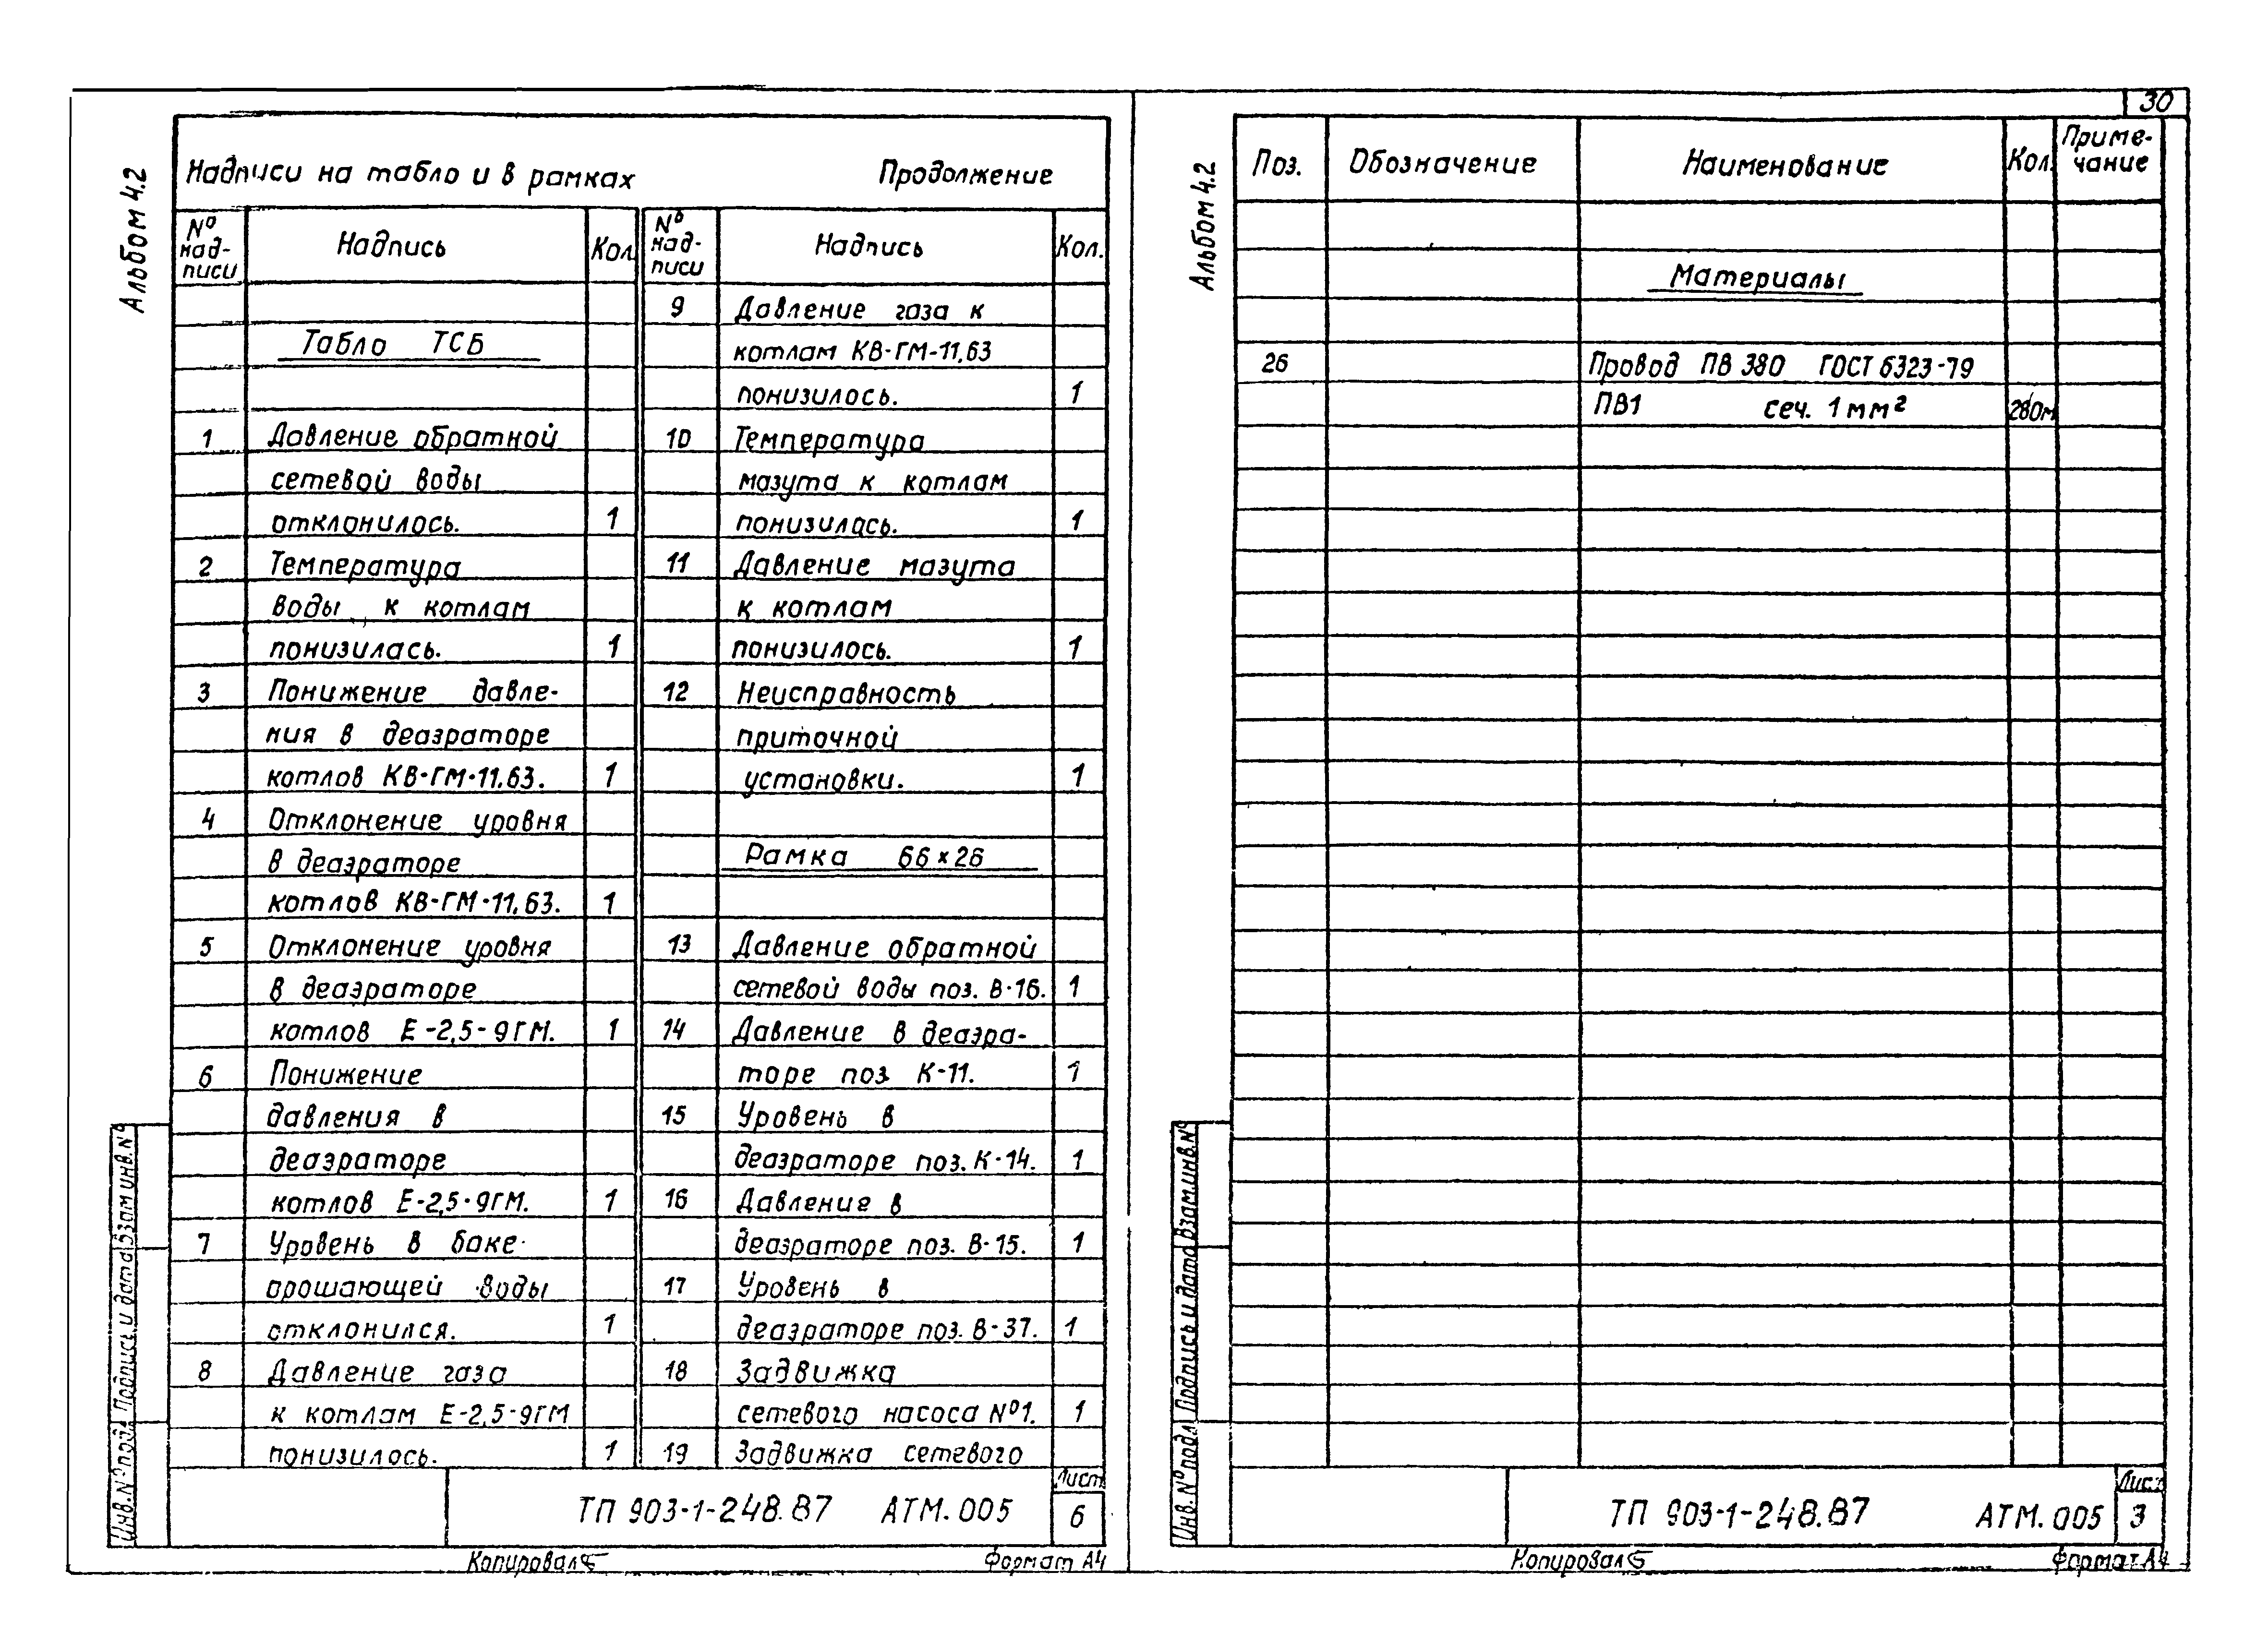 30
Альбом 4.2
Надписи на табло и в рамках Продолжение
№ надписи Надпись Кол.
Табло ТСБ
1 Давление обратной
сетевой воды
отклонилось. 1
2 Температура
воды к котлам
понизилась. 1
3 Понижение давле-
ния в деаэраторе
котлов КВ-ГМ-11,63. 1
4 Отклонение уровня
в деаэраторе
котлов КВ-ГМ-11,63. 1
5 Отклонение уровня
в деаэраторе
котлов Е-2,5-9ГМ. 1
6 Понижение
давления в
деаэраторе
котлов Е-2,5-9ГМ. 1
7 Уровень в баке
орошающей воды
отклонился. 1
8 Давление газа
к котлам Е-2,5-9ГМ
понизилось. 1
№ над-
писи Надпись Кол.
9 Давление газа к
котлам КВ-ГМ-11,63
понизилось. 1
10 Температура
мазута к котлам
понизилась. 1
11 Давление мазута
к котлам
понизилось. 1
12 Неисправность
приточной
установки. 1
Рамка 66×26
13 Давление обратной
сетевой воды поз. В-16. 1
14 Давление в деаэра-
торе поз К-11. 1
15 Уровень в
деаэраторе поз. К-14. 1
16 Давление в
деаэраторе поз. В-15. 1
17 Уровень в
деаэраторе поз. В-37. 1
18 Задвижка
сетевого насоса №1. 1
19 Задвижка сетевого
Инв. № подл. Подпись и дата Взам инв. №
ТП 903-1-248.87 АТМ.005
Лист
6
Копировал
Формат А4
Альбом 4.2
Поз. Обозначение Наименование Кол. Приме-
чание
Материалы
26 Провод ПВ 380 ГОСТ 6323-79
ПВ1 сеч. 1 мм² 280м
Инв. № подл Подпись и дата Взам.инв.№
ТП 903-1-248.87 АТМ.005
Лист
3
Копировал
Формат А4